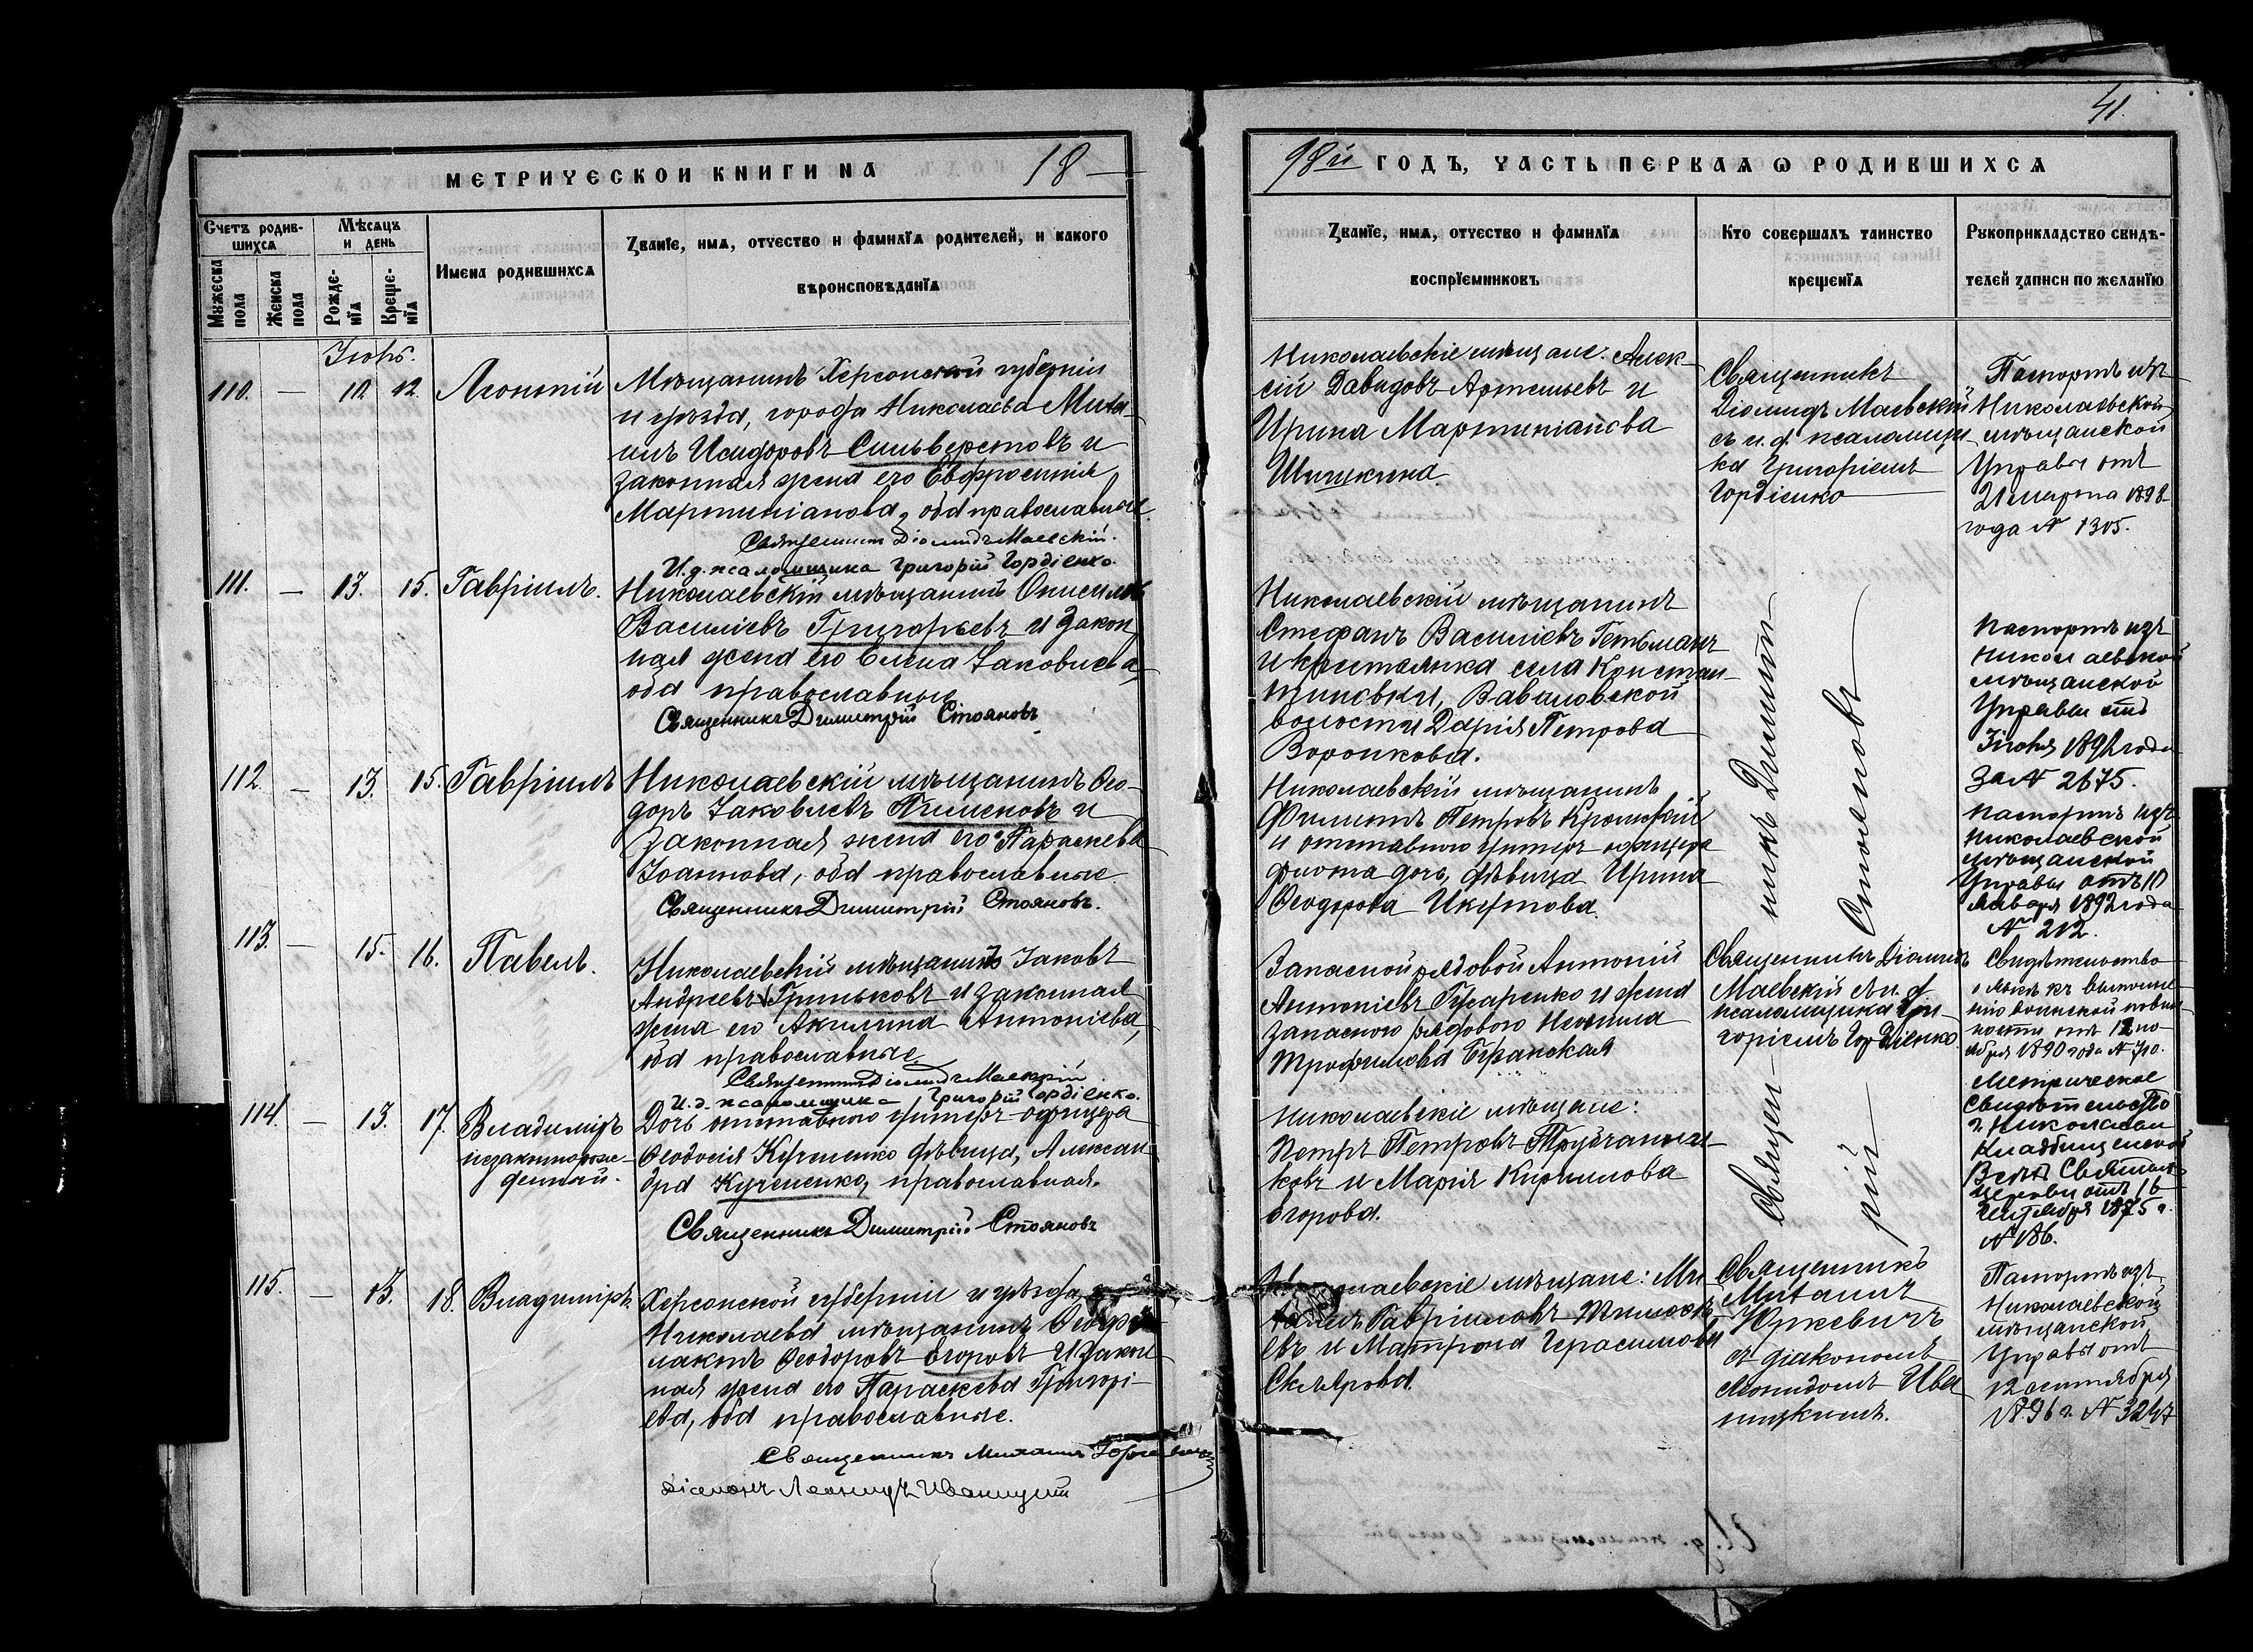 41.
МЕТРИЧЕСКОИ КНИГИ NА 18
98й ГОДЪ, ЧАСТЬ ПЕРВАѦ Ѡ РОДИВШИХСѦ
Счетъ родив-
шихсѧ
Мѣсѧцъ
и день
Мужеска
пола
Женска
пола
Рожде-
нїѧ
Креще-
нїѧ
Имена родившихсѧ
Званїе, имѧ, отчество и фамилїѧ родителей, и какого
вѣроисповѣданїѧ
Званїе, имѧ, отчество и фамилїѧ
воспрїемниковъ
Кто совершалъ таинство
крещенїѧ
Рукоприкладство свидѣ-
телей записи по желанїю
110. — 12. Леонтій
Мѣщанинъ Херсонской губерніи
и уѣзда, города Николаева Миха
илъ Исидоровъ Сильверстовъ и
законная жена его Евфросинія
Мартиніанова, оба православные.
Священникъ Діомидъ Маевскій.
И.д. псаломщика Григорій Гордіенко.
Николаевскіе мѣщане: Алек-
сій Давидовъ Артемьевъ и
Ирина Мартиніанова
Шишкина.
Священникъ
Діомидъ Маевскій
съ и. д. псаломщи-
ка Григоріемъ
Гордіенко
Паспортъ изъ
Николаевской
мѣщанской
Управы отъ
21 марта 1898
года № 1305.
111. — 13. 15. Гавріилъ.
Николаевскій мѣщанинъ
Василіевъ Григорьевъ и закон
ная жена его Елена Іаковлева,
оба православные
Священникъ Димитрій Стояновъ
Николаевскій мѣщанинъ
Стефанъ Василіевъ Гетьманъ
и крестьянка села Констан-
тиновки, Вавиловской
волости Дарія Петрова
Воронкова.
Паспортъ изъ
Николаевской
мѣщанской
Управы отъ
года
за № 2675.
112. — 13. 15. Гавріилъ
Николаевскій мѣщанинъ Ѳео-
доръ Іаковлевъ Пименовъ и
законная жена его Параскева
Іоаннова, оба православные.
Священникъ Димитрій Стояновъ.
Николаевскій мѣщанинъ
Филиппъ Петровъ
и отставного унтеръ-офицера
флота дочь, дѣвица Ирина
Ѳеодорова
Священникъ Димитрій Стояновъ
Паспортъ изъ
Николаевской
мѣщанской
Управы отъ
января 1892 года
№ 212.
113. — 15. 16. Павелъ.
Николаевскій мѣщанинъ Іаковъ
Андреевъ Гриньковъ и законная
жена его Акилина Антоніева,
оба православные.
Священникъ Діомидъ Маевскій
И.д. псаломщика Григорій Гордіенко.
Запасной рядовой Антоній
Антоніевъ Гусаренко и жена
запасного рядового
Трофимова
Священникъ Діомидъ
Маевскій съ и. д.
псаломщика Гри-
горіемъ Гордіенко.
Свидѣтельство
о явкѣ къ выполне-
нію воинской повин-
ности отъ 12 но-
ября 1890 года
114. — 13. 17. Владиміръ
незаконнорож-
денный.
Дочь отставного унтеръ-офицера
Ѳеодосія Кучменко дѣвица, Алексан
дра православная.
Священникъ Димитрій Стояновъ
Николаевскіе мѣщане:
Петръ Петровъ
ковъ и Марія Кириллова
Егорова.
Метрическое
свидѣтельство
г. Николаева
Кладбищенской
Всѣхъ Святыхъ
церкви отъ 16
1875 г.
№ 186.
115. — 13. 18. Владиміръ.
Херсонской губерніи и уѣзда,
Николаева мѣщанинъ
Ѳеодоровъ Егоровъ и закон
ная жена его Параскева Григорі-
ева, оба православные.
Священникъ Михаилъ Юркевичъ
Діаконъ Леонидъ Иваницкій
Николаевскіе мѣщане: Ми
хаилъ Гавріиловъ
евъ и Матрона Герасимова
Склярова.
Священникъ
Михаилъ
Юркевичъ
съ діакономъ
Леонидомъ Ива
ницкимъ.
Паспортъ изъ
Николаевской
мѣщанской
Управы отъ
12 сентября
1896 г. № 3247